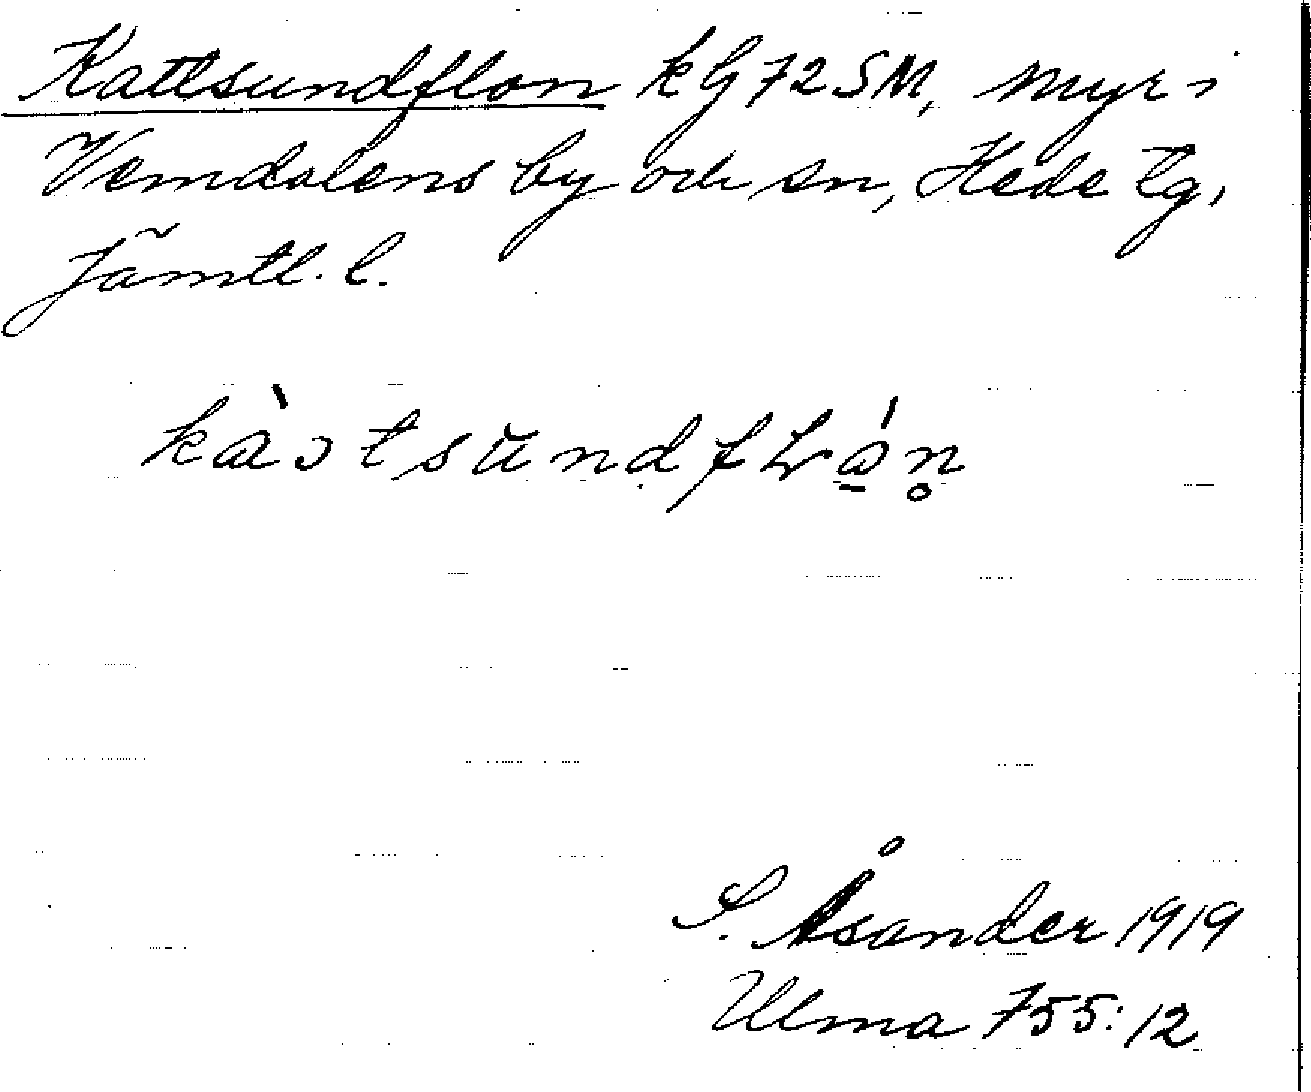 Kattsundflon kG 72 SM, myr i
Vemdalens by och sn, Hede tg,
Jämtl. l.
S. Åsander 1919
Ulma 755:12